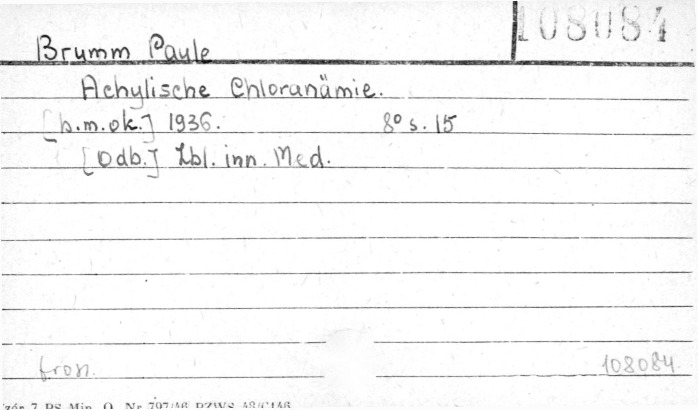 108084
Brumm Paule
Achylische Chloranämie.
[b.m.ok.] 1936. 8° s. 15
[Odb.] Zbl. inn. Med.
108084
7 PS Min. O. Nr 797/46 PZWS